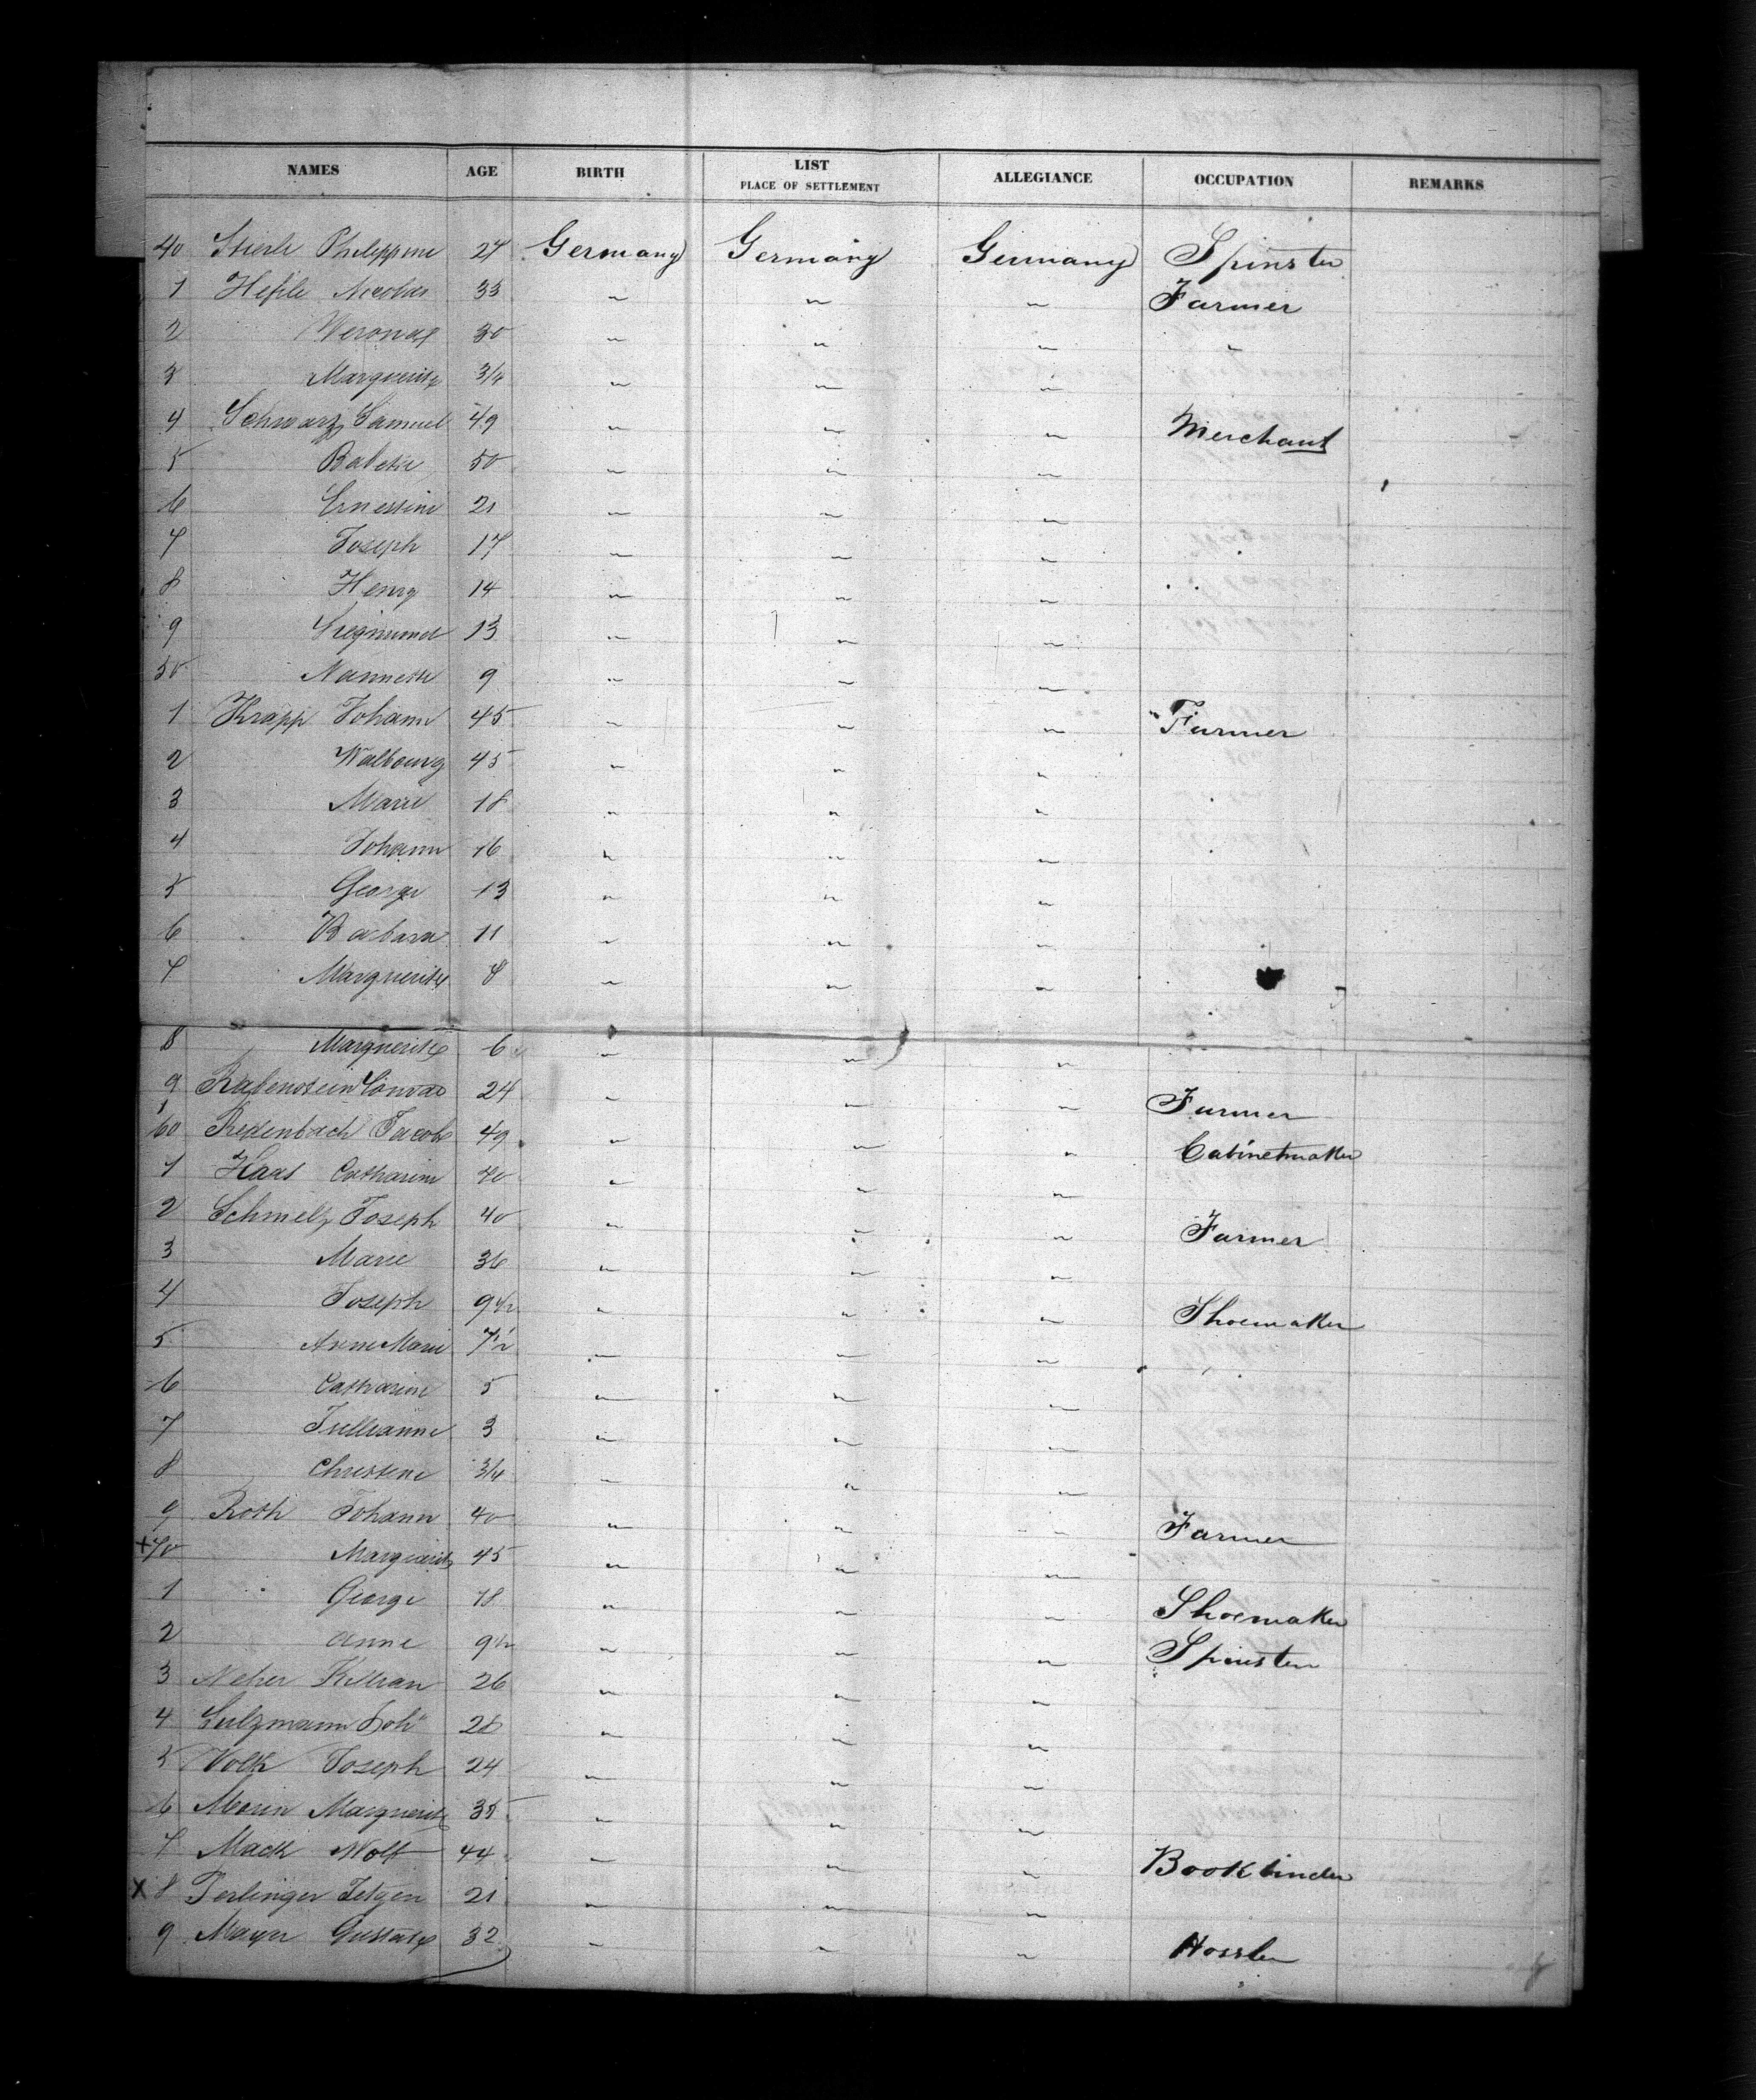 NAMES AGE BIRTH LIST PLACE OF SETTLEMENT ALLEGIANCE OCCUPATION REMARKS
40 Stierle Philippine 27 Germany Germany Germany Spinster
1 Hefele Nicolas 33 " " " Farmer
2 Veronas 30 " " " "
3 Marguerite 3/4 " " "
4 Schwarz Samuel 49 " " " Merchant
5 Babette 50 " " "
6 Ernestine 21 " " "
7 Joseph 17 " " "
8 Henry 14 " " "
9 Siegmund 13 " "
50 Nannette 9 " " "
1 Krapp Johann 45 " " " Farmer
2 Walbourg 45 " " "
3 Marie 18 " " "
4 Johann 16 " " "
5 George 13 " " "
6 Barbara 11 " " "
7 Marguerite 8 " " "
8 Marguerite 6 " " "
9 Rabenstein Conrad 24 " " " Farmer
60 Redenbach Jacob 49 " " " Cabinetmaker
1 Haas Catharine 40 " " "
2 Schmelz Joseph 40 " " " Farmer
3 Marie 36 " " "
4 Joseph 9 1/2 " " " Shoemaker
5 Anne Marie 7 1/2 " " "
6 Catharine 5 " " "
7 Jullianne 3 " " "
8 Christine 3/4 " " "
9 Roth Johann 40 " " " Farmer
x 70 Marguerite 45 " " "
1 George 18 " " " Shoemaker
2 Anne 9 1/2 " " " Spinster
3 Neher Killian 26 " " "
4 Sulzmann Joh" 28 " " "
5 Volk Joseph 24 " " "
6 Morin Marguerite 35 " " "
7 Mack Wolf 44 " " " Bookbinder
x 8 Perlinger 21 " " "
9 Mayer Gustave 32 " " " Hossler